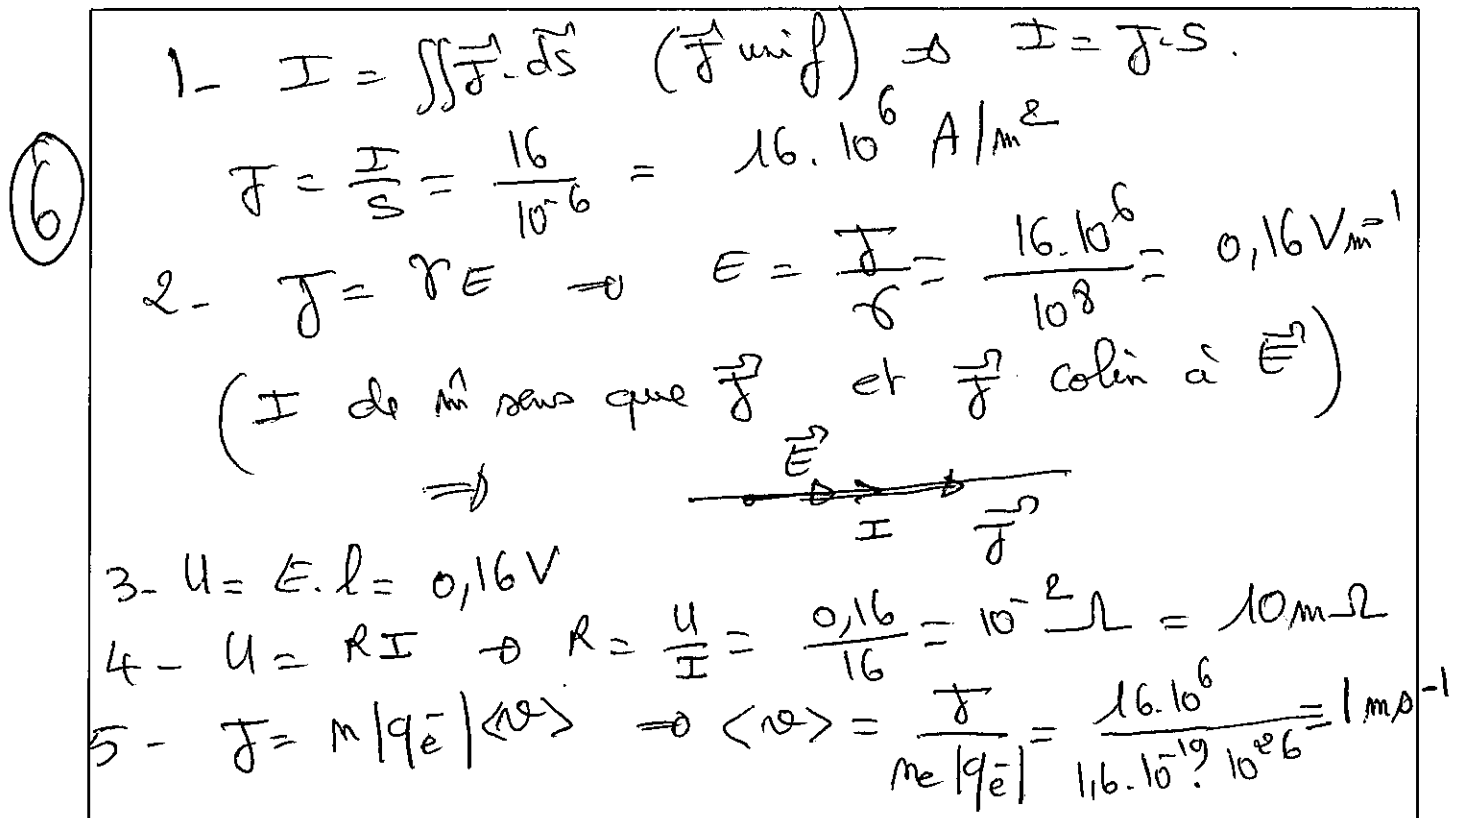 1- I = ∬ J⃗.dS⃗ (J⃗ unif) ⇒ I = J.S.
⑥
J = I/S = 16/10⁻⁶ = 16.10⁶ A/m²
2- J = γE → E = J/γ = 16.10⁶/10⁸ = 0,16 Vm⁻¹
(I de m̂ sens que J⃗ et J⃗ colin à E⃗)
⇒ E⃗
I J⃗
3- U = E.l = 0,16 V
4- U = RI → R = U/I = 0,16/16 = 10⁻² Ω = 10 mΩ
5- J = n|qē|<v> → <v> = J/ne|qē| = 16.10⁶/1,6.10⁻¹⁹. 10²⁶ = 1 ms⁻¹